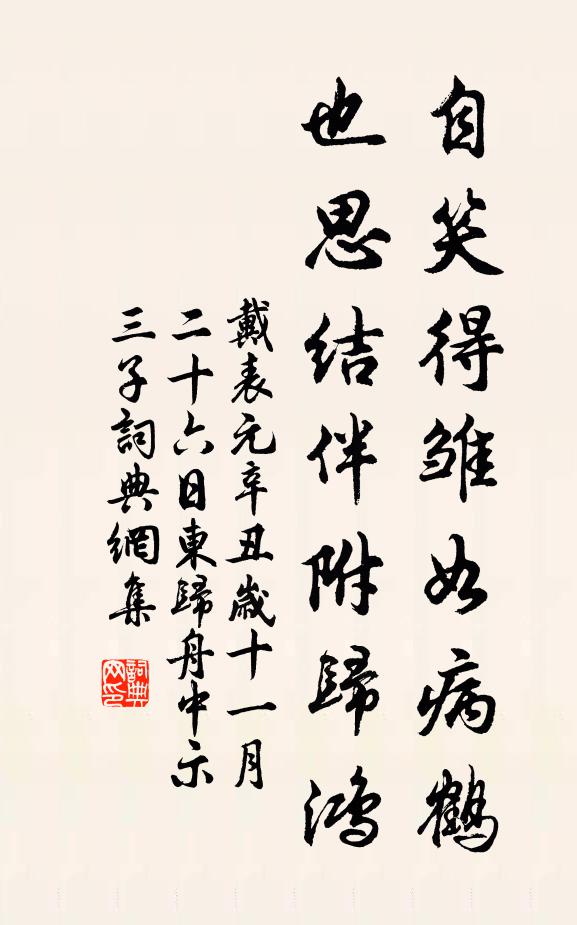 自笑得雏如病鶴
也思结伴附歸鴻
戴表元辛丑歲十一月
二十六日東歸舟中示
三子詞典網集
詞典
网印